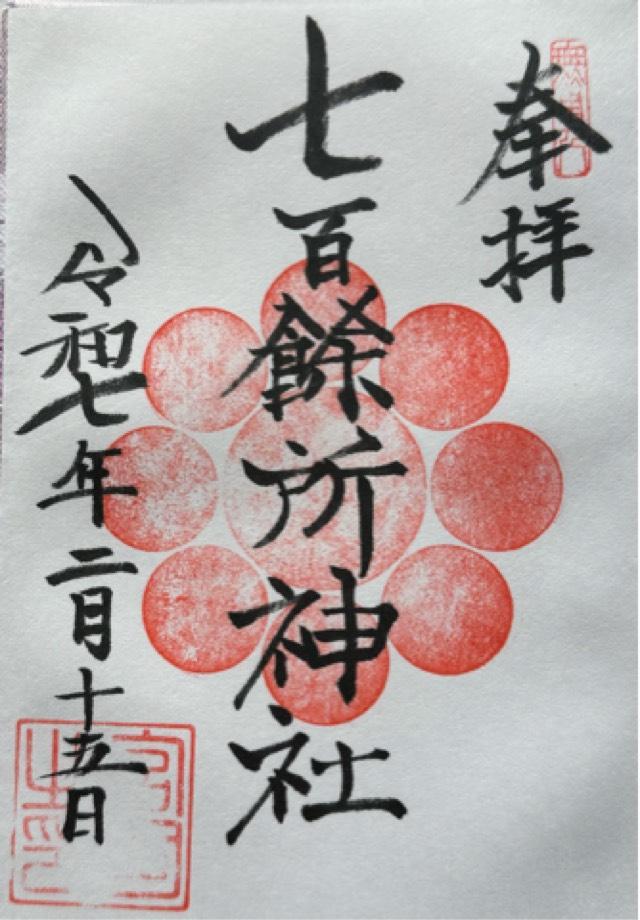 奉拝
七百餘所神社
令和七年二月十五日